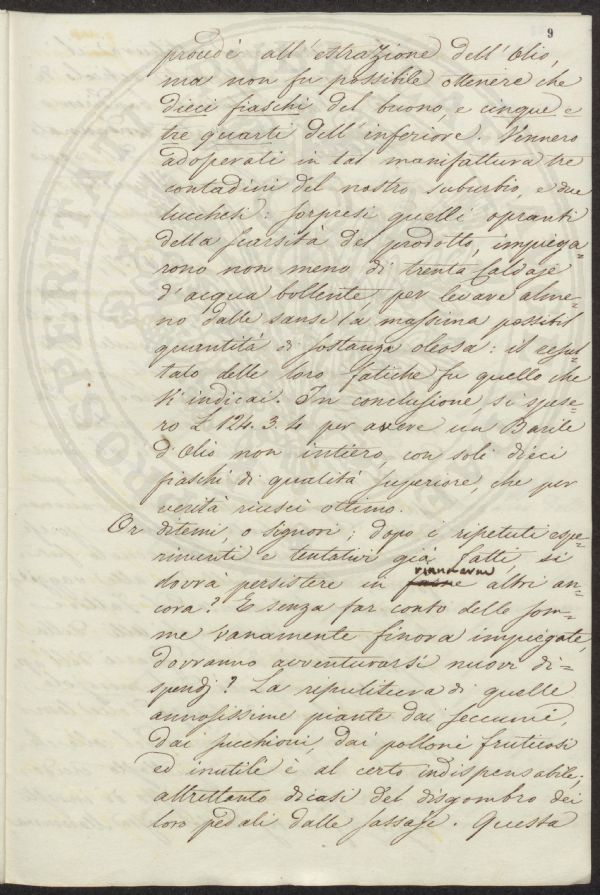 9
procedè all'estrazione dell'Olio,
ma non fu possibile ottenere che
dieci fiaschi del buono, e cinque e
tre quarti dell'inferiore. Vennero
adoperati in tal manifattura tre
contadini del nostro suburbio, e due
lucchesi: sorpresi quelli opranti
della scarsità del prodotto, impiega=
rono non meno di trenta Caldaje
d'acqua bollente, per levare alme=
no dalle sanse la massima possibil
quantità di sostanza oleosa: il resul=
tato delle loro fatiche fu quello che
v'indicai. In conclusione, si spese=
ro L 124. 3. 4 per avere un Barile
d'Olio non intiero, con soli dieci
fiaschi di qualità superiore, che per
verità riuscì ottimo.
Or ditemi, o signori; dopo i ripetuti espe=
rimenti e tentativi già fatti, si
dovrà persistere in farne altri an=
cora? E senza far conto delle som=
me vanamente finora impiegate,
dovranno avventurarsi nuovi di=
spendj? La ripulitura di quelle
annosissime piante dai seccumi,
dai succhioni, dai polloni fruticosi
ed inutili è al certo indispensabile;
altrettanto dicasi del disgombro dei
loro pedali dalle sassaje. Questa
PROSPERITA